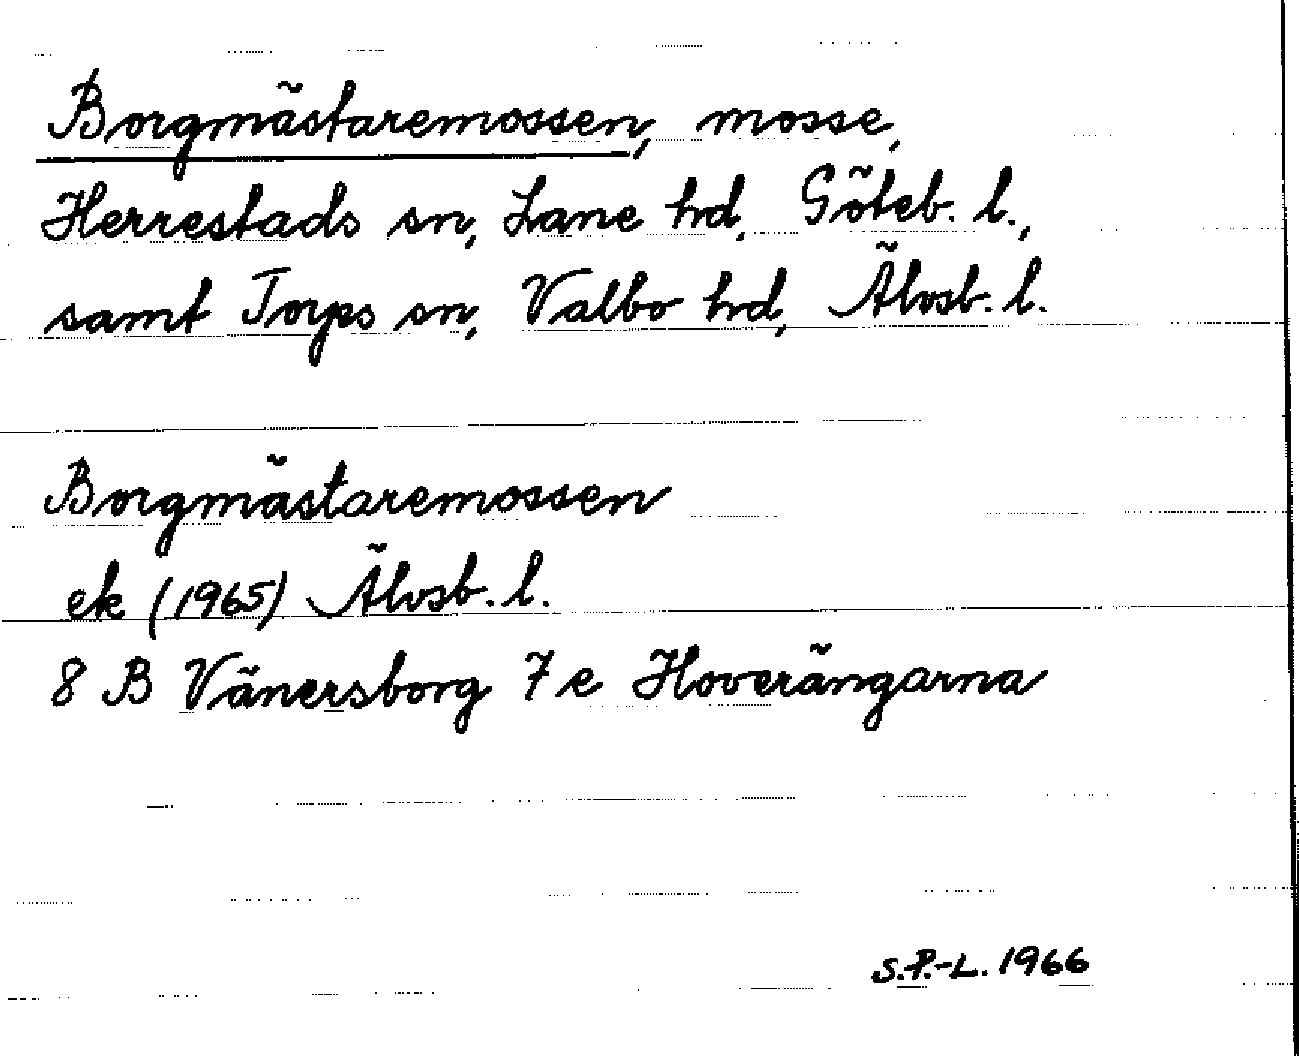 Borgmästaremossen, mosse,
Herrestads sn, Lane hd, Göteb. l.,
samt Torps sn, Valbo hd, Älvsb. l.
Borgmästaremossen
ek (1965) Älvsb. l.
8 B Vänersborg 7 e Hoverängarna
S.P.-L. 1966